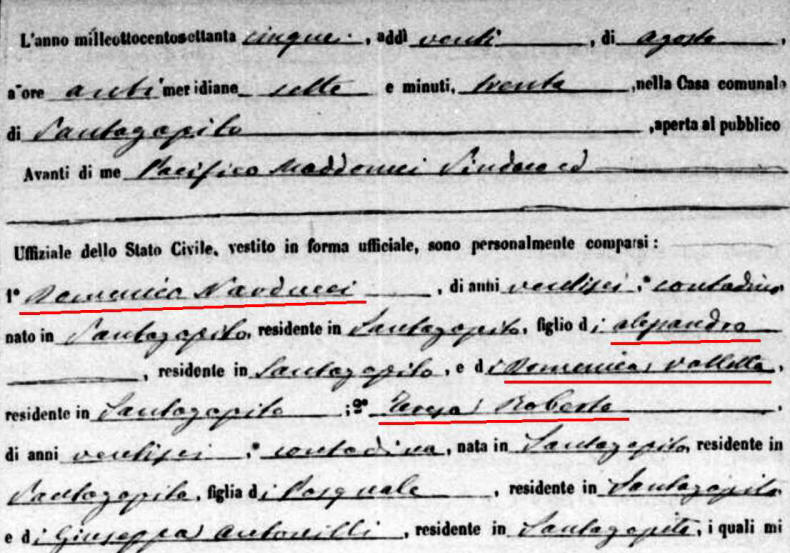 L'anno milleottocentosettanta cinque, addì venti, di agosto,
a ore anti meridiane sette e minuti, trenta, nella Casa comunale
di Santagapito, aperta al pubblico
Avanti di me Pacifico Sindaco ed
Uffiziale dello Stato Civile, vestito in forma ufficiale, sono personalmente comparsi:
1° Domenico Narducci, di anni ventisei, contadino
nato in Santagapito, residente in Santagapito, figlio di Alesandro
, residente in Santagapito, e di Domenica Valletta,
residente in Santagapito; 2° Teresa Roberto,
di anni ventisei, contadina, nata in Santagapito, residente in
Santagapito, figlia di Pasquale, residente in Santagapito
e di Giuseppa Antonilli, residente in Santagapito, i quali mi